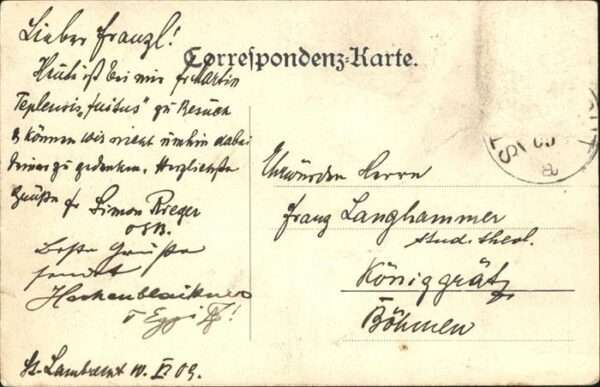 Lieber Franzl!
Correspondenz-Karte.
Heute ist bei mir fr Martin
zu Besuch
& können wir nicht umhin dabei
deiner zu gedenken. Herzlichste
Grüße fr Simon Rieger
OSB.
Beste Grüße
sendet
St. Lambrecht 10. X 09.
Ehrwürden Herrn
Franz Langhammer
stud. theol.
Königgrätz
Böhmen
a